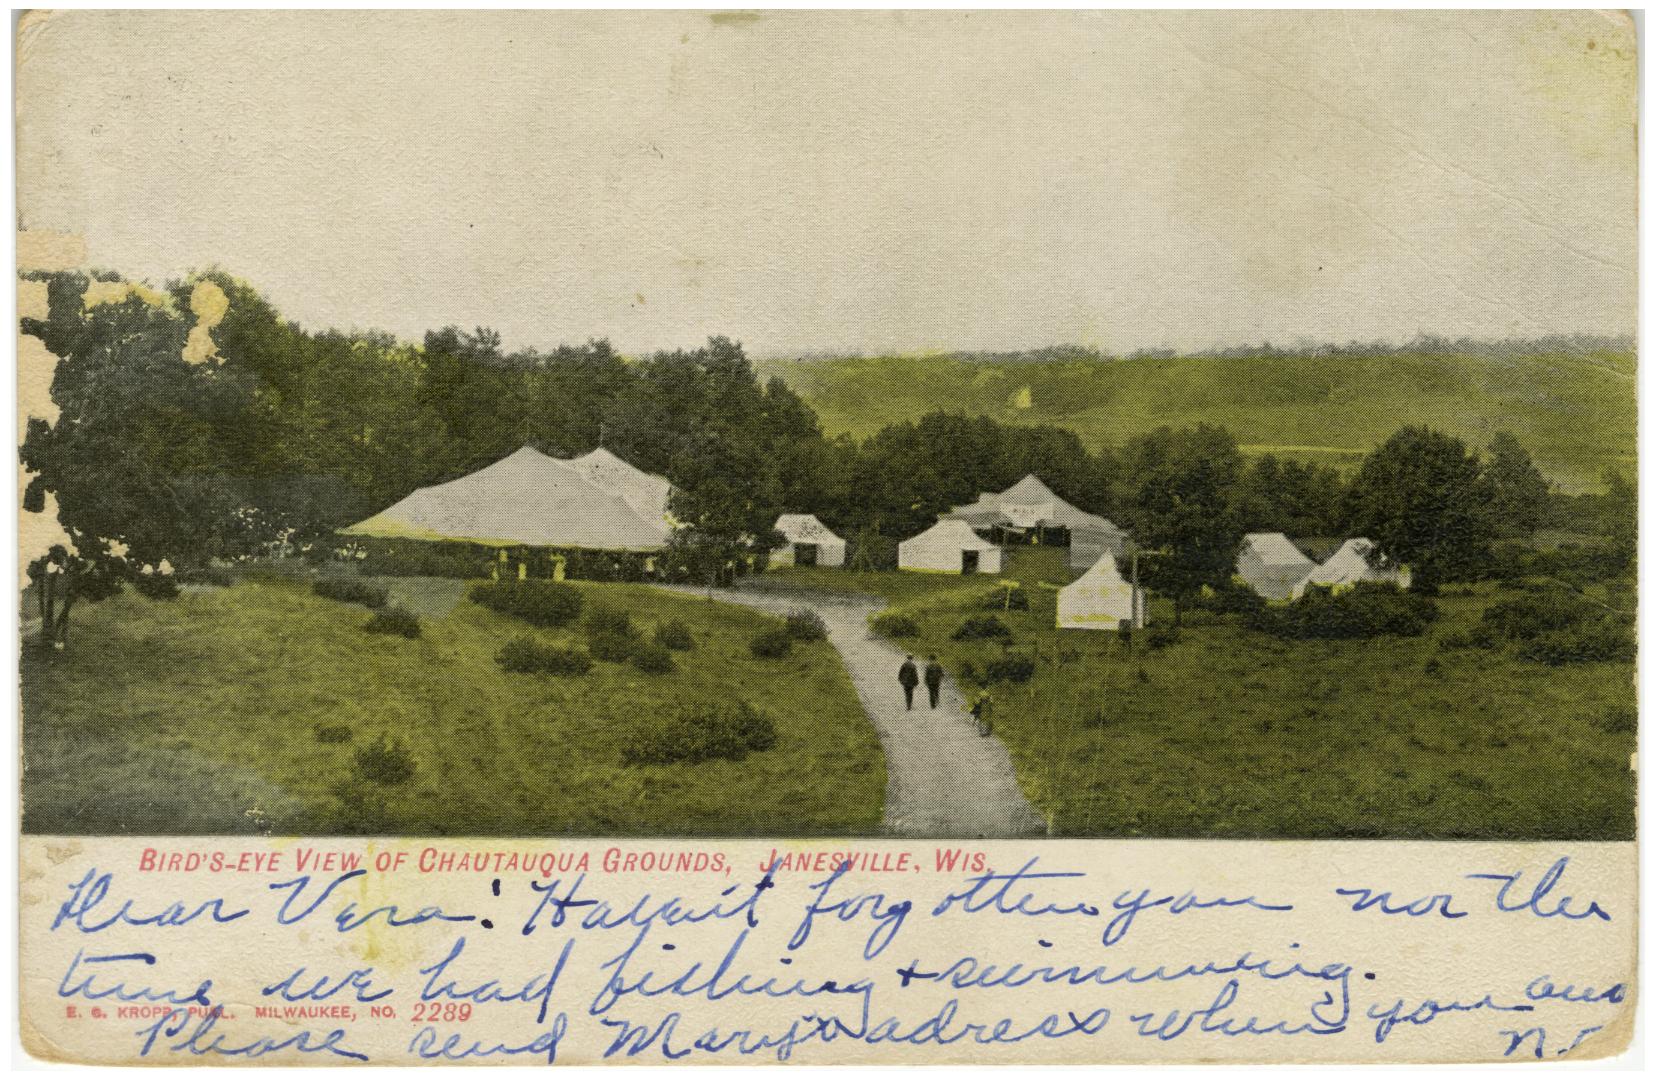 BIRD'S-EYE VIEW OF CHAUTAUQUA GROUNDS, JANESVILLE, WIS.
Dear Vera: Haven't forgotten you nor the
time we had fishing + swimming.
E. C. KROPP, PUBL. MILWAUKEE, NO. 2289
Please send adress when you